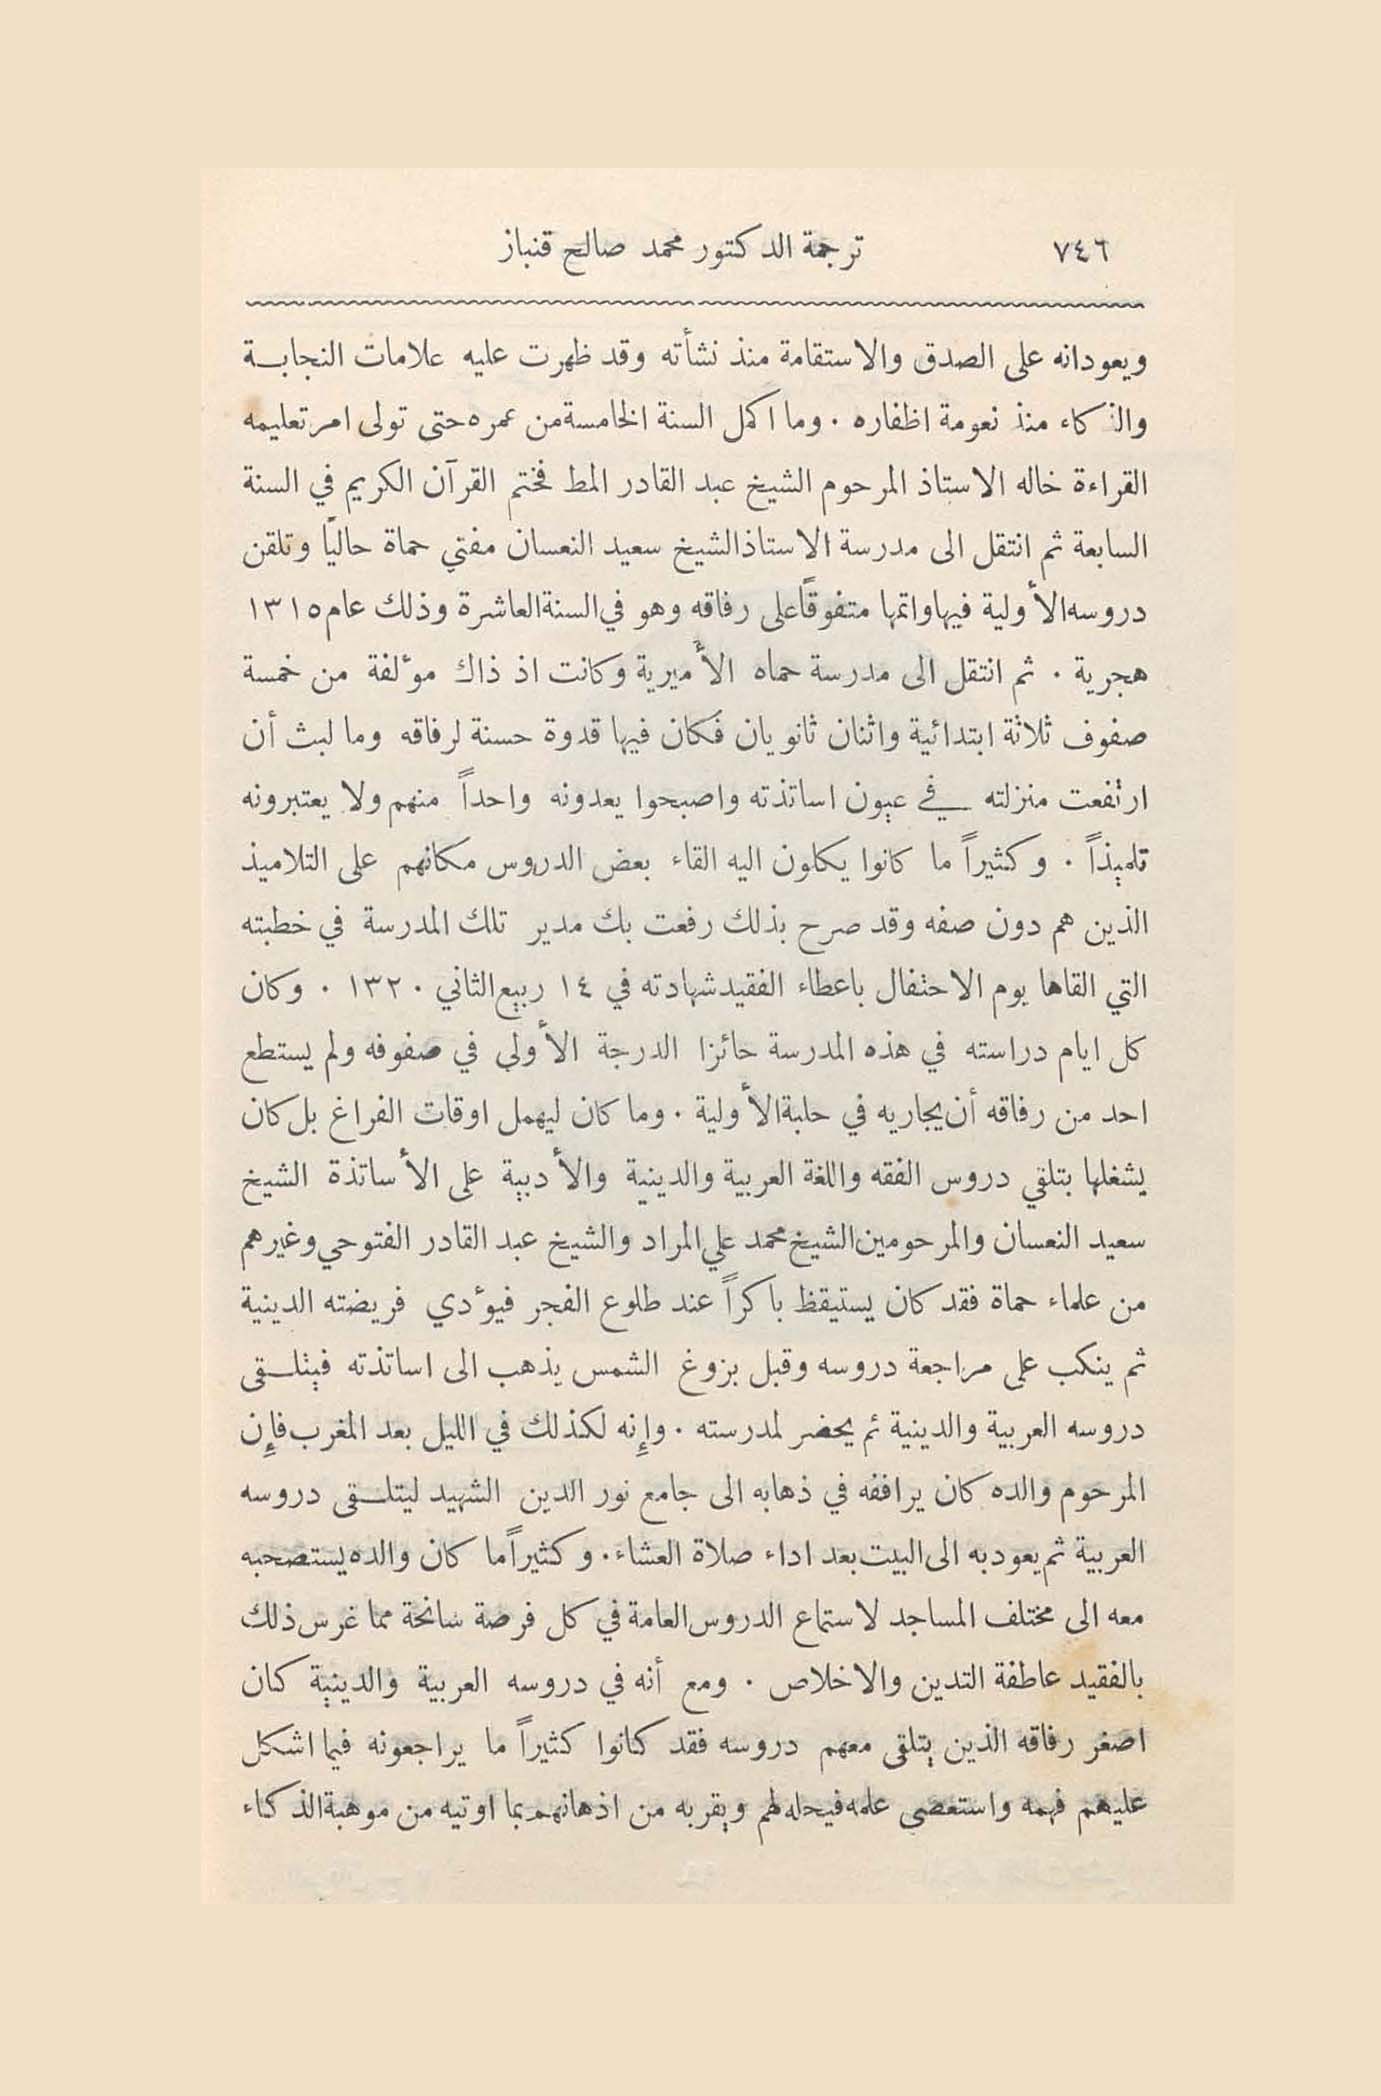 ٧٤٦ ترجمة الدكتور محمد صالح قنباز
ويعودانه على الصدق والاستقامة منذ نشأته وقد ظهرت عليه علامات النجابة
والذكاء منذ نعومة اظفاره . وما اكمل السنة الخامسة من عمره حتى تولى امر تعليمه
القراءة خاله الاستاذ المرحوم الشيخ عبد القادر المط فختم القرآن الكريم في السنة
السابعة ثم انتقل الى مدرسة الاستاذ الشيخ سعيد النعسان مفتي حماة حاليًا وتلقن
دروسه الأولية فيها واتمها متفوقاً على رفاقه وهو في السنة العاشرة وذلك عام ١٣١٥
هجرية . ثم انتقل الى مدرسة حماه الأميرية وكانت اذ ذاك مؤلفة من خمسة
صفوف ثلاثة ابتدائية واثنان ثانويان فكان فيها قدوة حسنة لرفاقه وما لبث أن
ارتفعت منزلته في عيون اساتذته واصبحوا يعدونه واحداً منهم ولا يعتبرونه
تلميذاً . وكثيراً ما كانوا يكلون اليه القاء بعض الدروس مكانهم على التلاميذ
الذين هم دون صفه وقد صرح بذلك رفعت بك مدير تلك المدرسة في خطبته
التي القاها يوم الاحتفال باعطاء الفقيد شهادته في ١٤ ربيع الثاني ١٣٢٠ . وكان
كل ايام دراسته في هذه المدرسة حائزا الدرجة الأولى في صفوفه ولم يستطع
احد من رفاقه أن يجاريه في حلبة الأولية . وما كان ليهمل اوقات الفراغ بل كان
يشغلها بتلقي دروس الفقه واللغة العربية والدينية والأدبية على الأساتذة الشيخ
سعيد النعسان والمرحومين الشيخ محمد علي المراد والشيخ عبد القادر الفتوحي وغيرهم
من علماء حماة فقد كان يستيقظ باكراً عند طلوع الفجر فيؤدي فريضته الدينية
ثم ينكب على مراجعة دروسه وقبل بزوغ الشمس يذهب الى اساتذته فيتلقى
دروسه العربية والدينية ثم يحضر لمدرسته . وإنه لكذلك في الليل بعد المغرب فإن
المرحوم والده كان يرافقه في ذهابه الى جامع نور الدين الشهيد ليتلقى دروسه
العربية ثم يعود به الى البيت بعد اداء صلاة العشاء . وكثيراً ما كان والده يستصحبه
معه الى مختلف المساجد لاستماع الدروس العامة في كل فرصة سانحة مما غرس ذلك
بالفقيد عاطفة التدين والاخلاص . ومع أنه في دروسه العربية والدينية كان
اصغر رفاقه الذين يتلقى معهم دروسه فقد كانوا كثيراً ما يراجعونه فيما اشكل
عليهم فهمه واستعصى علمه فيحله لهم ويقربه من اذهانهم بما اوتيه من موهبة الذكاء